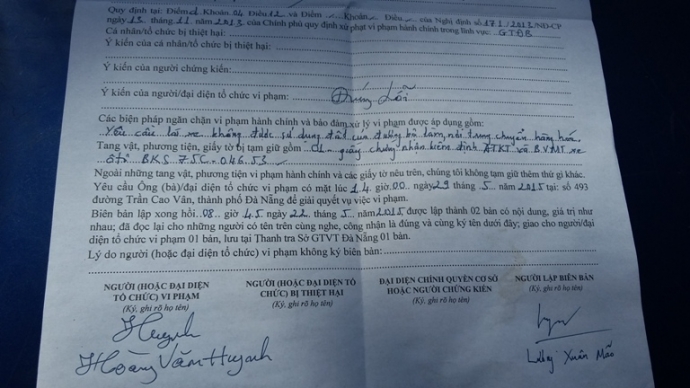 Quy định tại: Điểm d Khoản 04 Điều 12 và Điểm Khoản Điều của Nghị định số 171/2013/NĐ-CP
ngày 13 tháng 11 năm 2013 của Chính phủ quy định xử phạt vi phạm hành chính trong lĩnh vực: GTĐB
Cá nhân/tổ chức bị thiệt hại:
Ý kiến của cá nhân/tổ chức bị thiệt hại:
Ý kiến của người chứng kiến:
Ý kiến của người/đại diện tổ chức vi phạm: Đúng Lỗi
Các biện pháp ngăn chặn vi phạm hành chính và bảo đảm xử lý vi phạm được áp dụng gồm:
Yêu cầu lái xe không được sử dụng đất của đường bộ làm nơi trung chuyển hàng hoá.
Tang vật, phương tiện, giấy tờ bị tạm giữ gồm: 01 giấy chứng nhận kiểm định ATKT và BVMT xe
ôtô BKS 75C-046.53
Ngoài những tang vật, phương tiện vi phạm hành chính và các giấy tờ nêu trên, chúng tôi không tạm giữ thêm thứ gì khác.
Yêu cầu Ông (bà)/đại diện tổ chức vi phạm có mặt lúc 14 giờ.00 ngày 29 tháng 5 năm 2015 tại: số 493
đường Trần Cao Vân, thành phố Đà Nẵng để giải quyết vụ việc vi phạm.
Biên bản lập xong hồi..08.. giờ 45 ngày 22. tháng 5.. năm 2015 được lập thành 02 bản có nội dung, giá trị như
nhau; đã đọc lại cho những người có tên trên cùng nghe, công nhận là đúng và cùng ký tên dưới đây; giao cho người/đại
diện tổ chức vi phạm 01 bản, lưu tại Thanh tra Sở GTVT Đà Nẵng 01 bản.
Lý do người (hoặc đại diện tổ chức) vi phạm không ký biên bản:
NGƯỜI (HOẶC ĐẠI DIỆN
TỔ CHỨC) VI PHẠM
(Ký, ghi rõ họ tên)
Huynh
Hoàng Văn Huynh
NGƯỜI (HOẶC ĐẠI DIỆN TỔ
CHỨC) BỊ THIỆT HẠI
(Ký, ghi rõ họ tên)
ĐẠI DIỆN CHÍNH QUYỀN CƠ SỞ
HOẶC NGƯỜI CHỨNG KIẾN
(Ký, ghi rõ họ tên)
NGƯỜI LẬP BIÊN BẢN
(Ký, ghi rõ họ tên)
Xuân Mão